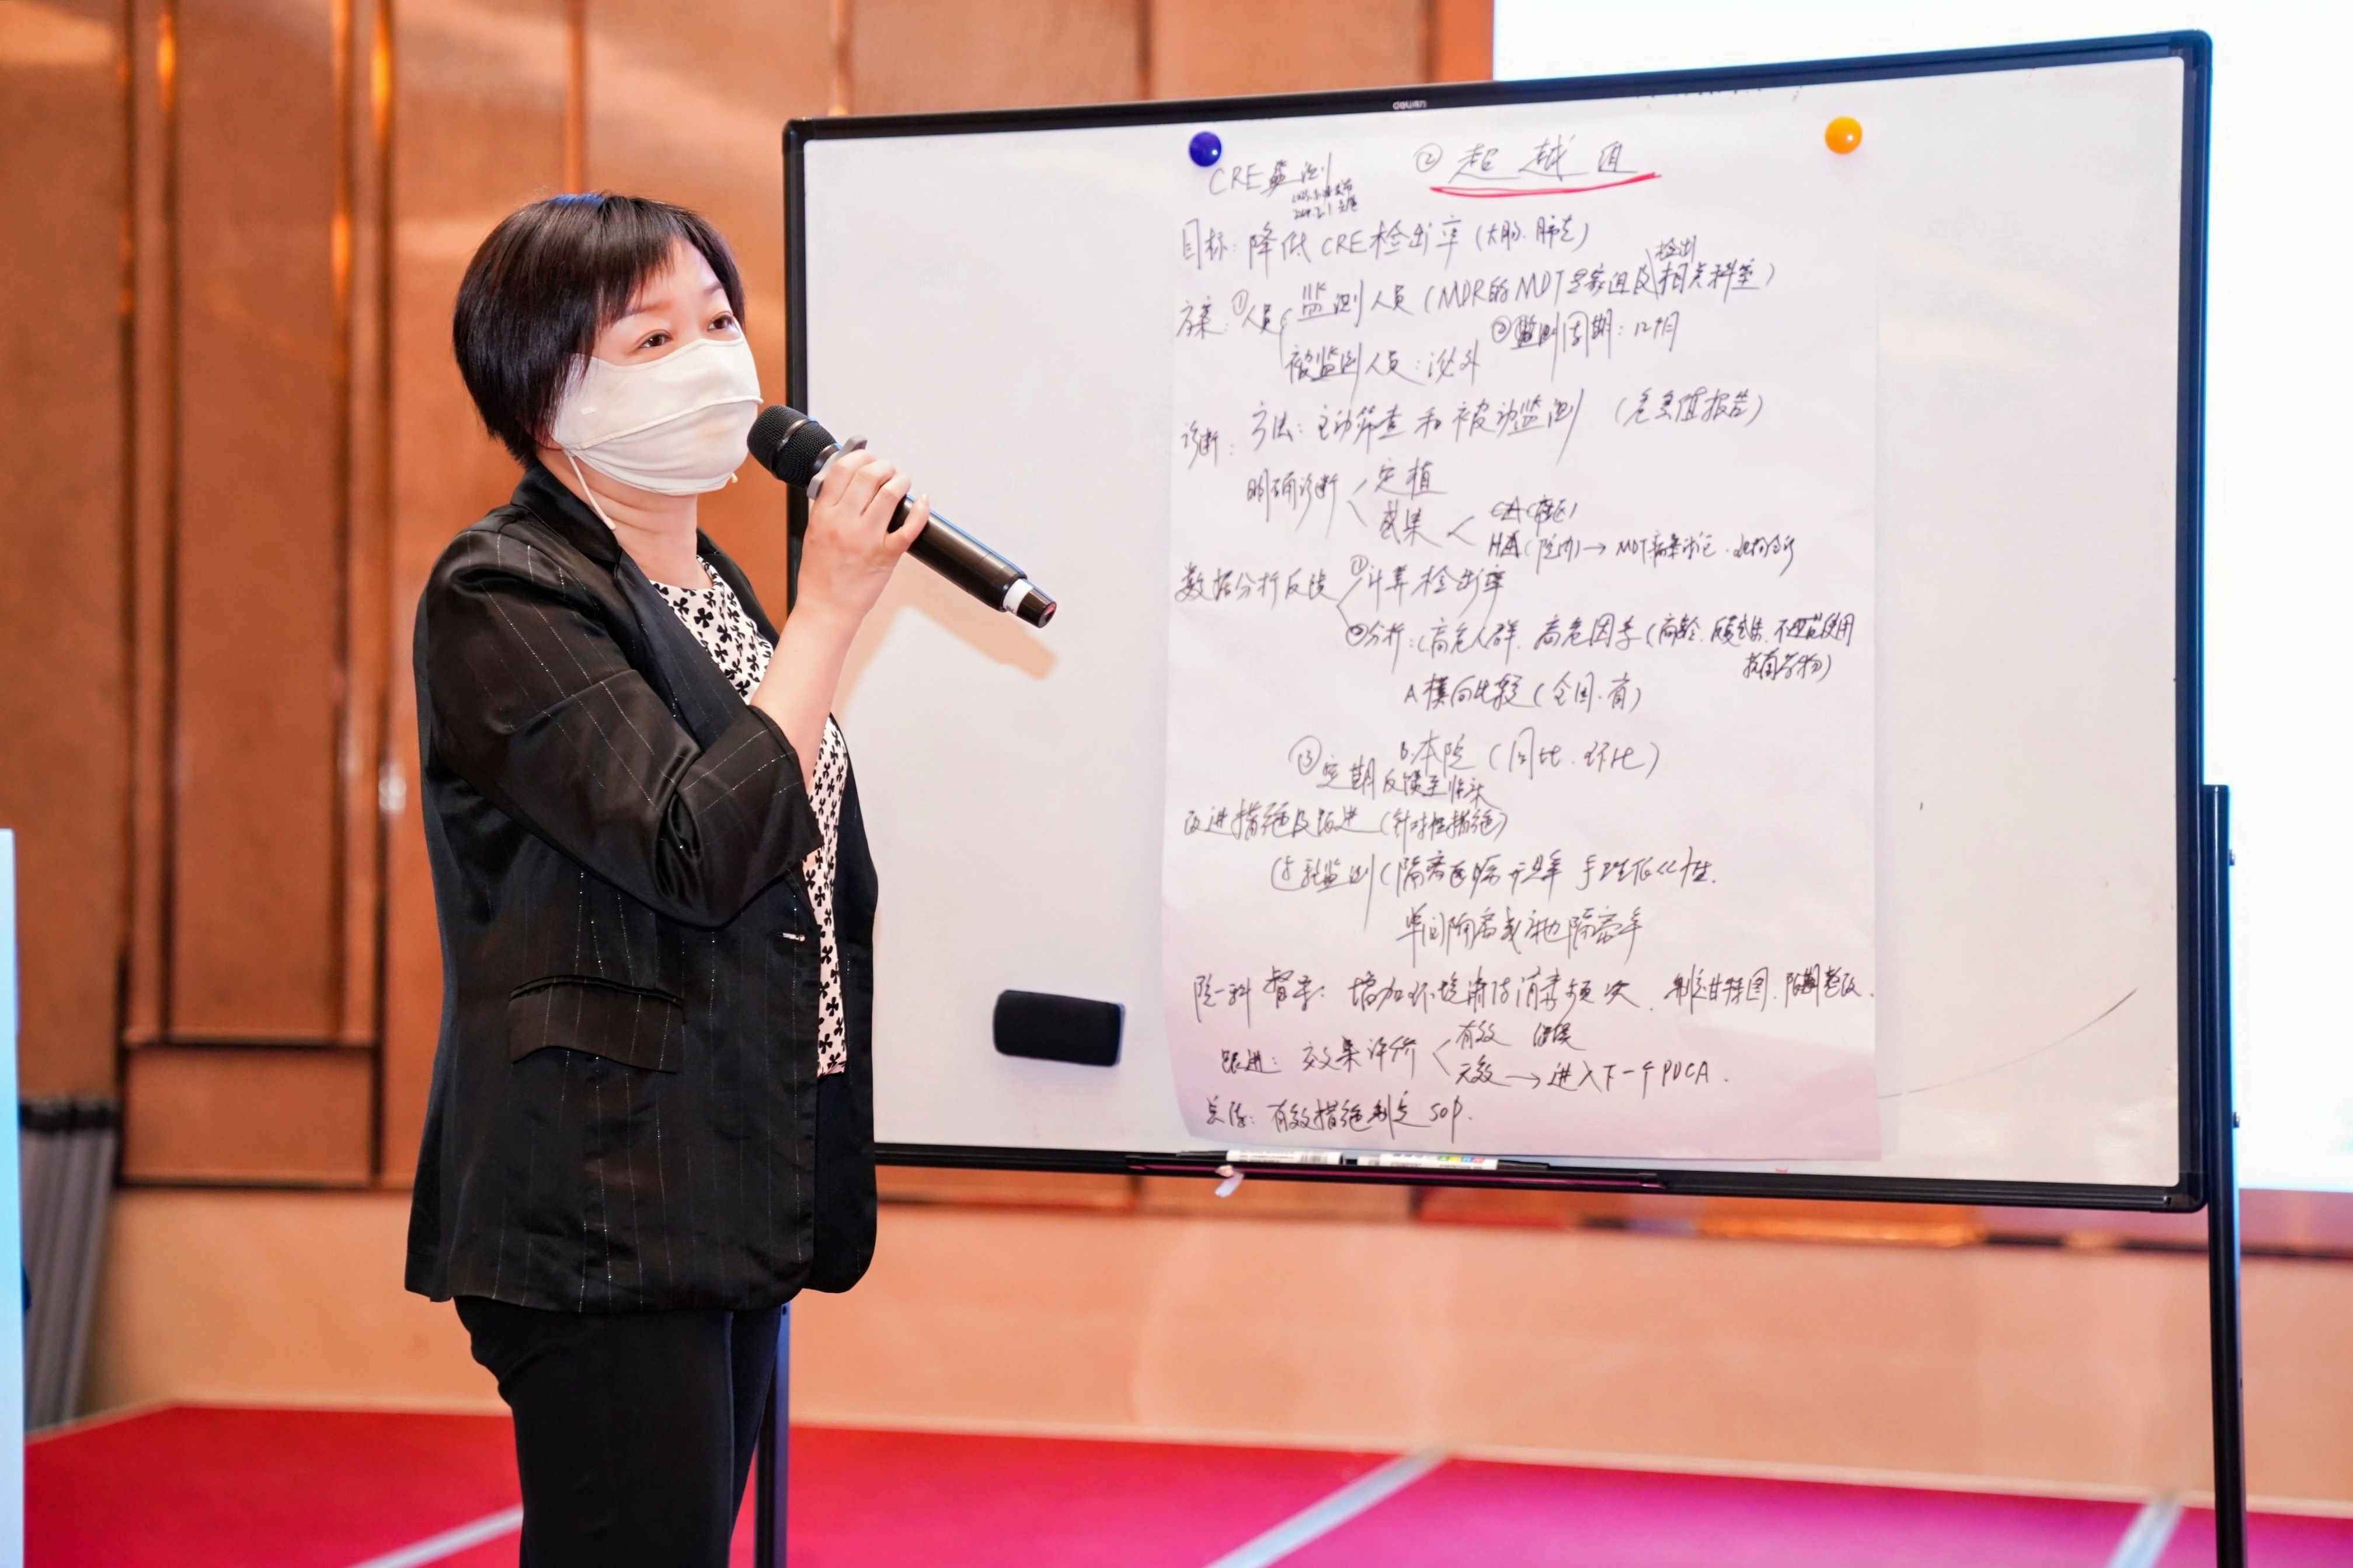 ② 超越组
CRE监测
目标: 降低CRE检出率 (大肠、肺克)
方案: ①人员 监测人员 (MDR的MDT专家组及检测相关科室)
被监测人员: 泌外 ②监测周期: 12个月
诊断: 方法: 主动筛查和被动监测 (危急值报告)
明确诊断 定植
感染 CA (社区)
HA (院内) → MDT病案讨论
数据分析反馈 ①计算检出率
②分析: 高危人群、高危因素 (高龄、不规范使用
抗菌药物)
A 横向比较 (全国、省)
B. 本院 (同比、环比)
③定期反馈至临床
改进措施及跟进 (针对性措施)
监测 (隔离医嘱 手卫生依从性.
单间隔离或床边隔离
院-科 督导: 增加环境清洁消毒频次、制定甘特图、限期整改.
跟进: 效果评价 有效 继续
无效 → 进入下一个PDCA.
有效措施制定SOP.